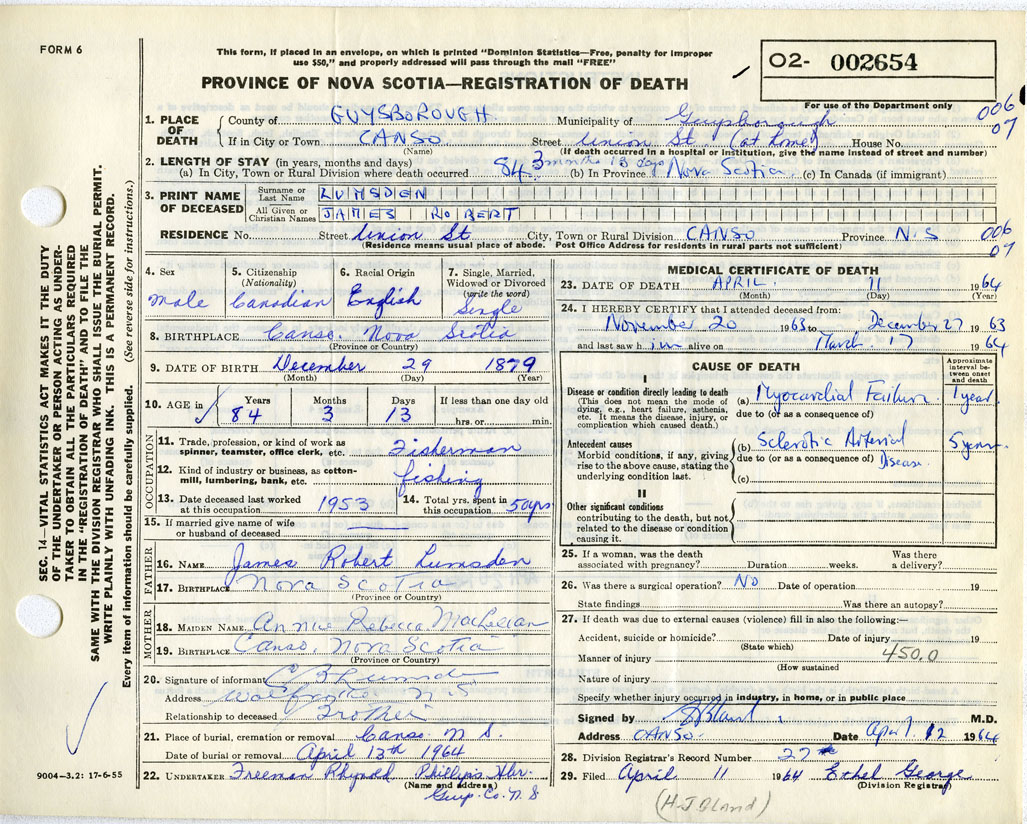 FORM 6
This form, if placed in an envelope, on which is printed "Dominion Statistics—Free, penalty for improper
use $50," and properly addressed will pass through the mail "FREE"
PROVINCE OF NOVA SCOTIA—REGISTRATION OF DEATH
O2- 002654
For use of the Department only
006
07
SEC. 14—VITAL STATISTICS ACT MAKES IT THE DUTY
OF THE UNDERTAKER OR PERSON ACTING AS UNDER-
TAKER TO OBTAIN ALL THE PARTICULARS REQUIRED
IN THE "REGISTRATION OF DEATH" AND TO FILE THE
SAME WITH THE DIVISION REGISTRAR WHO SHALL ISSUE THE BURIAL PERMIT.
WRITE PLAINLY WITH UNFADING INK. THIS IS A PERMANENT RECORD.
Every item of information should be carefully supplied. (See reverse side for instructions.)
1. PLACE OF DEATH
County of GUYSBOROUGH Municipality of Guysborough
If in City or Town CANSO Street Union St. (at home) House No.
(Name) (If death occurred in a hospital or institution, give the name instead of street and number)
2. LENGTH OF STAY (in years, months and days)
(a) In City, Town or Rural Division where death occurred 84 3 months 13 days (b) In Province Nova Scotia (c) In Canada (if immigrant)
3. PRINT NAME OF DECEASED
Surname or Last Name LUMSDEN
All Given or Christian Names JAMES ROBERT
RESIDENCE No. Street Union St City, Town or Rural Division CANSO Province N.S
006
07
(Residence means usual place of abode. Post Office Address for residents in rural parts not sufficient)
4. Sex
Male
5. Citizenship
(Nationality)
Canadian
6. Racial Origin
English
7. Single, Married,
Widowed or Divorced
(write the word)
Single
8. BIRTHPLACE Canso. Nova Scotia
(Province or Country)
9. DATE OF BIRTH December 29 1879
(Month) (Day) (Year)
10. AGE in
Years Months Days If less than one day old
84 3 13 hrs. or min.
OCCUPATION
11. Trade, profession, or kind of work as
spinner, teamster, office clerk, etc. Fisherman
12. Kind of industry or business, as cotton-
mill, lumbering, bank, etc. fishing
13. Date deceased last worked
at this occupation 1953
14. Total yrs. spent in
this occupation 50 yrs
15. If married give name of wife
or husband of deceased
FATHER
16. NAME James Robert Lumsden
17. BIRTHPLACE Nova Scotia
(Province or Country)
MOTHER
18. MAIDEN NAME Annie Rebecca
19. BIRTHPLACE Canso, Nova Scotia
(Province or Country)
20. Signature of informant C B Lumsden
Address N S
Relationship to deceased Brother
21. Place of burial, cremation or removal Canso N S.
Date of burial or removal April 13th 1964
22. UNDERTAKER Freeman Rhynold Phillips Hbr.
(Name and address)
Guys. Co. N. S
9004—3.2: 17-6-55
MEDICAL CERTIFICATE OF DEATH
23. DATE OF DEATH APRIL 11 1964
(Month) (Day) (Year)
24. I HEREBY CERTIFY that I attended deceased from:
November 20 1963 to December 27 1963
and last saw him alive on March 17 1964
CAUSE OF DEATH
Approximate
interval be-
tween onset
and death
I
Disease or condition directly leading to death
(This does not mean the mode of
dying, e.g., heart failure, asthenia,
etc. It means the disease, injury, or
complication which caused death.)
(a) Myocardial Failure 1 year
due to (or as a consequence of)
Antecedent causes
Morbid conditions, if any, giving
rise to the above cause, stating the
underlying condition last.
(b) Sclerotic Arterial 5 years
due to (or as a consequence of) Disease.
(c)
II
Other significant conditions
contributing to the death, but not
related to the disease or condition
causing it.
25. If a woman, was the death
associated with pregnancy? Duration weeks. Was there
a delivery?
26. Was there a surgical operation? No Date of operation 19
State findings Was there an autopsy?
27. If death was due to external causes (violence) fill in also the following:—
Accident, suicide or homicide? Date of injury 19
(State which)
450.0
Manner of injury
(How sustained
Nature of injury
Specify whether injury occurred in industry, in home, or in public place
Signed by M.D.
Address CANSO. Date April 12 1964
28. Division Registrar's Record Number 27
29. Filed April 11 1964 Ethel George
(Division Registrar)
(H.J Bland)